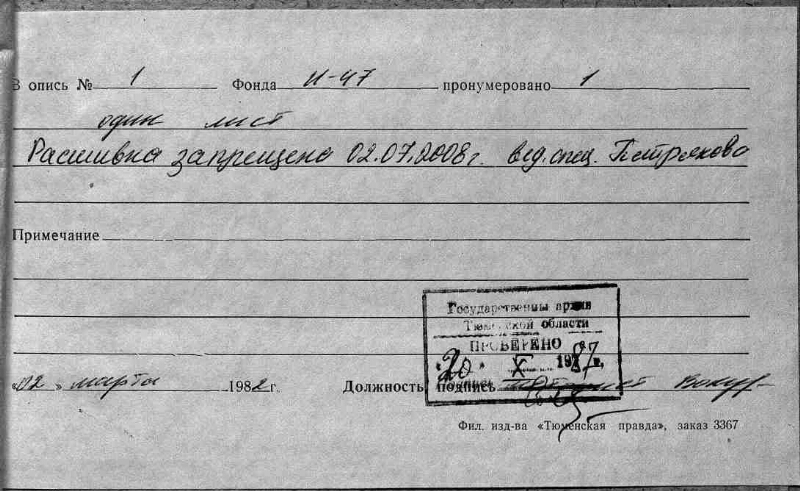 В опись № 1 Фонда И-47 пронумеровано 1
один лист
Расшивка запрещена 02.07.2008г. вед. спец. Петрякова
Примечание
Государственны архив
Тюменской области
ПРОВЕРЕНО
"20" X 1987 г.
"02" марта 1982 г. Должность, подпись
Фил. изд-ва «Тюменская правда», заказ 3367